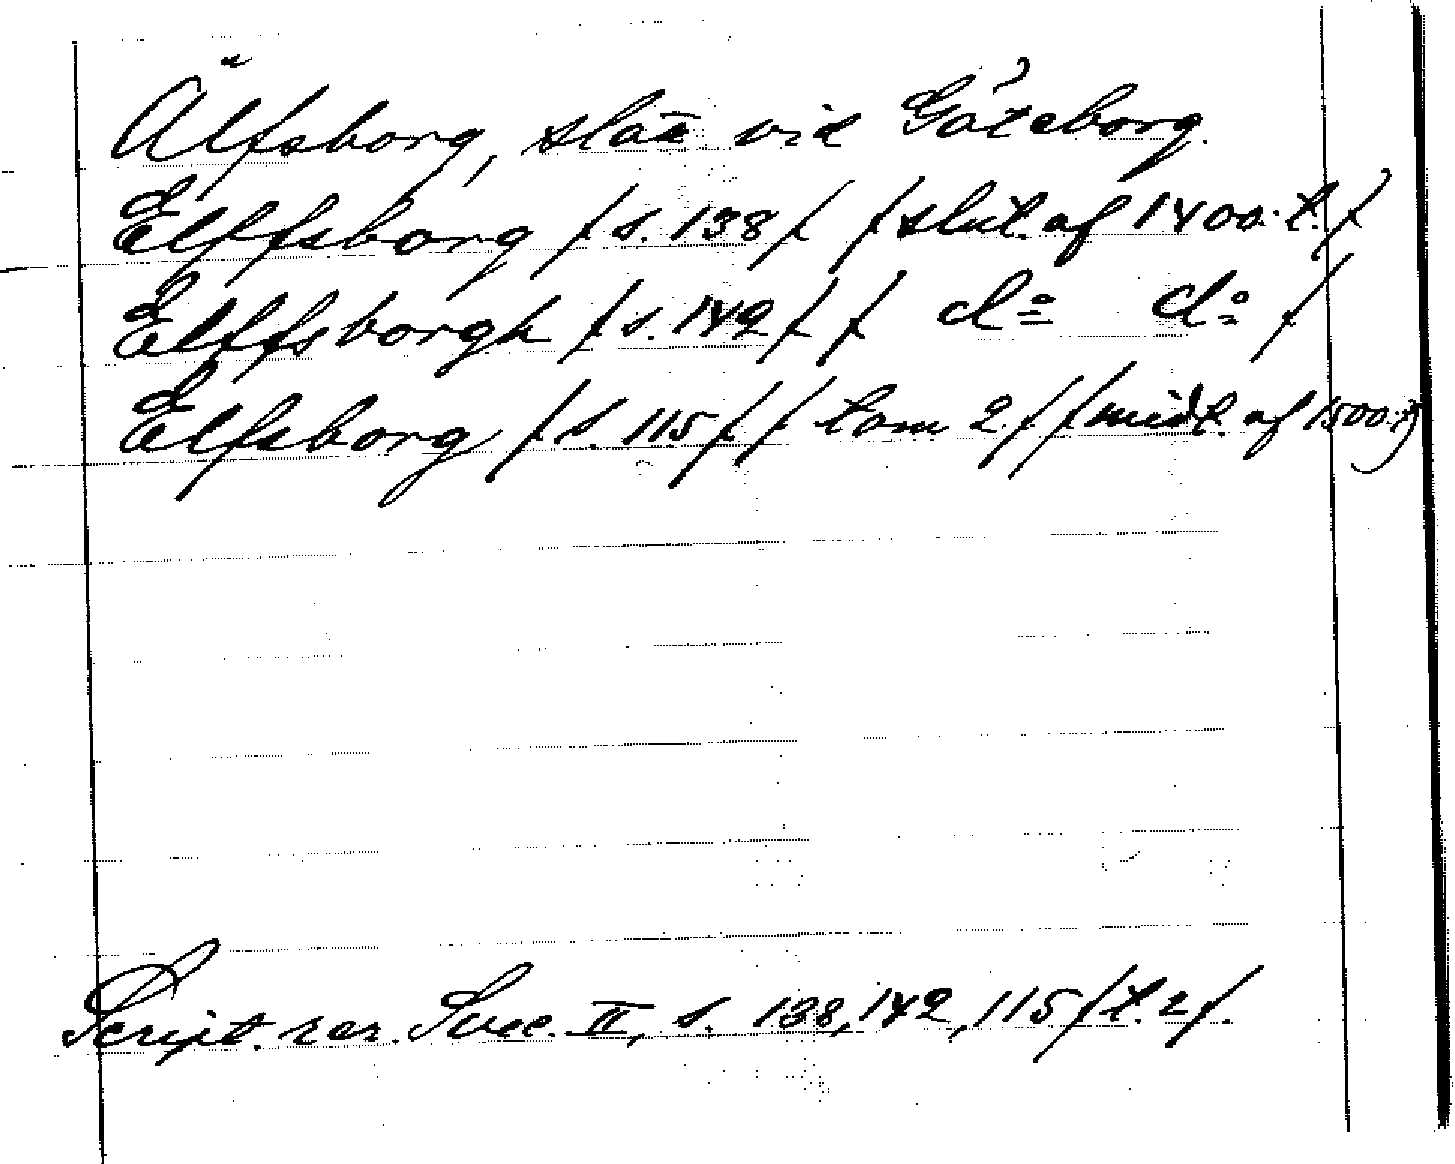 Älfsborg, slott vid Göteborg.
Elffsborg /s. 138/ /slut. af 1400. t./
Elffsborgh /s. 142/ / do do /
Elfsborg /s. 115/ / tom 2./ /midt. af 1500. t)
Script. rer. Svec. II, s. 138, 142, 115 /t. 2/.